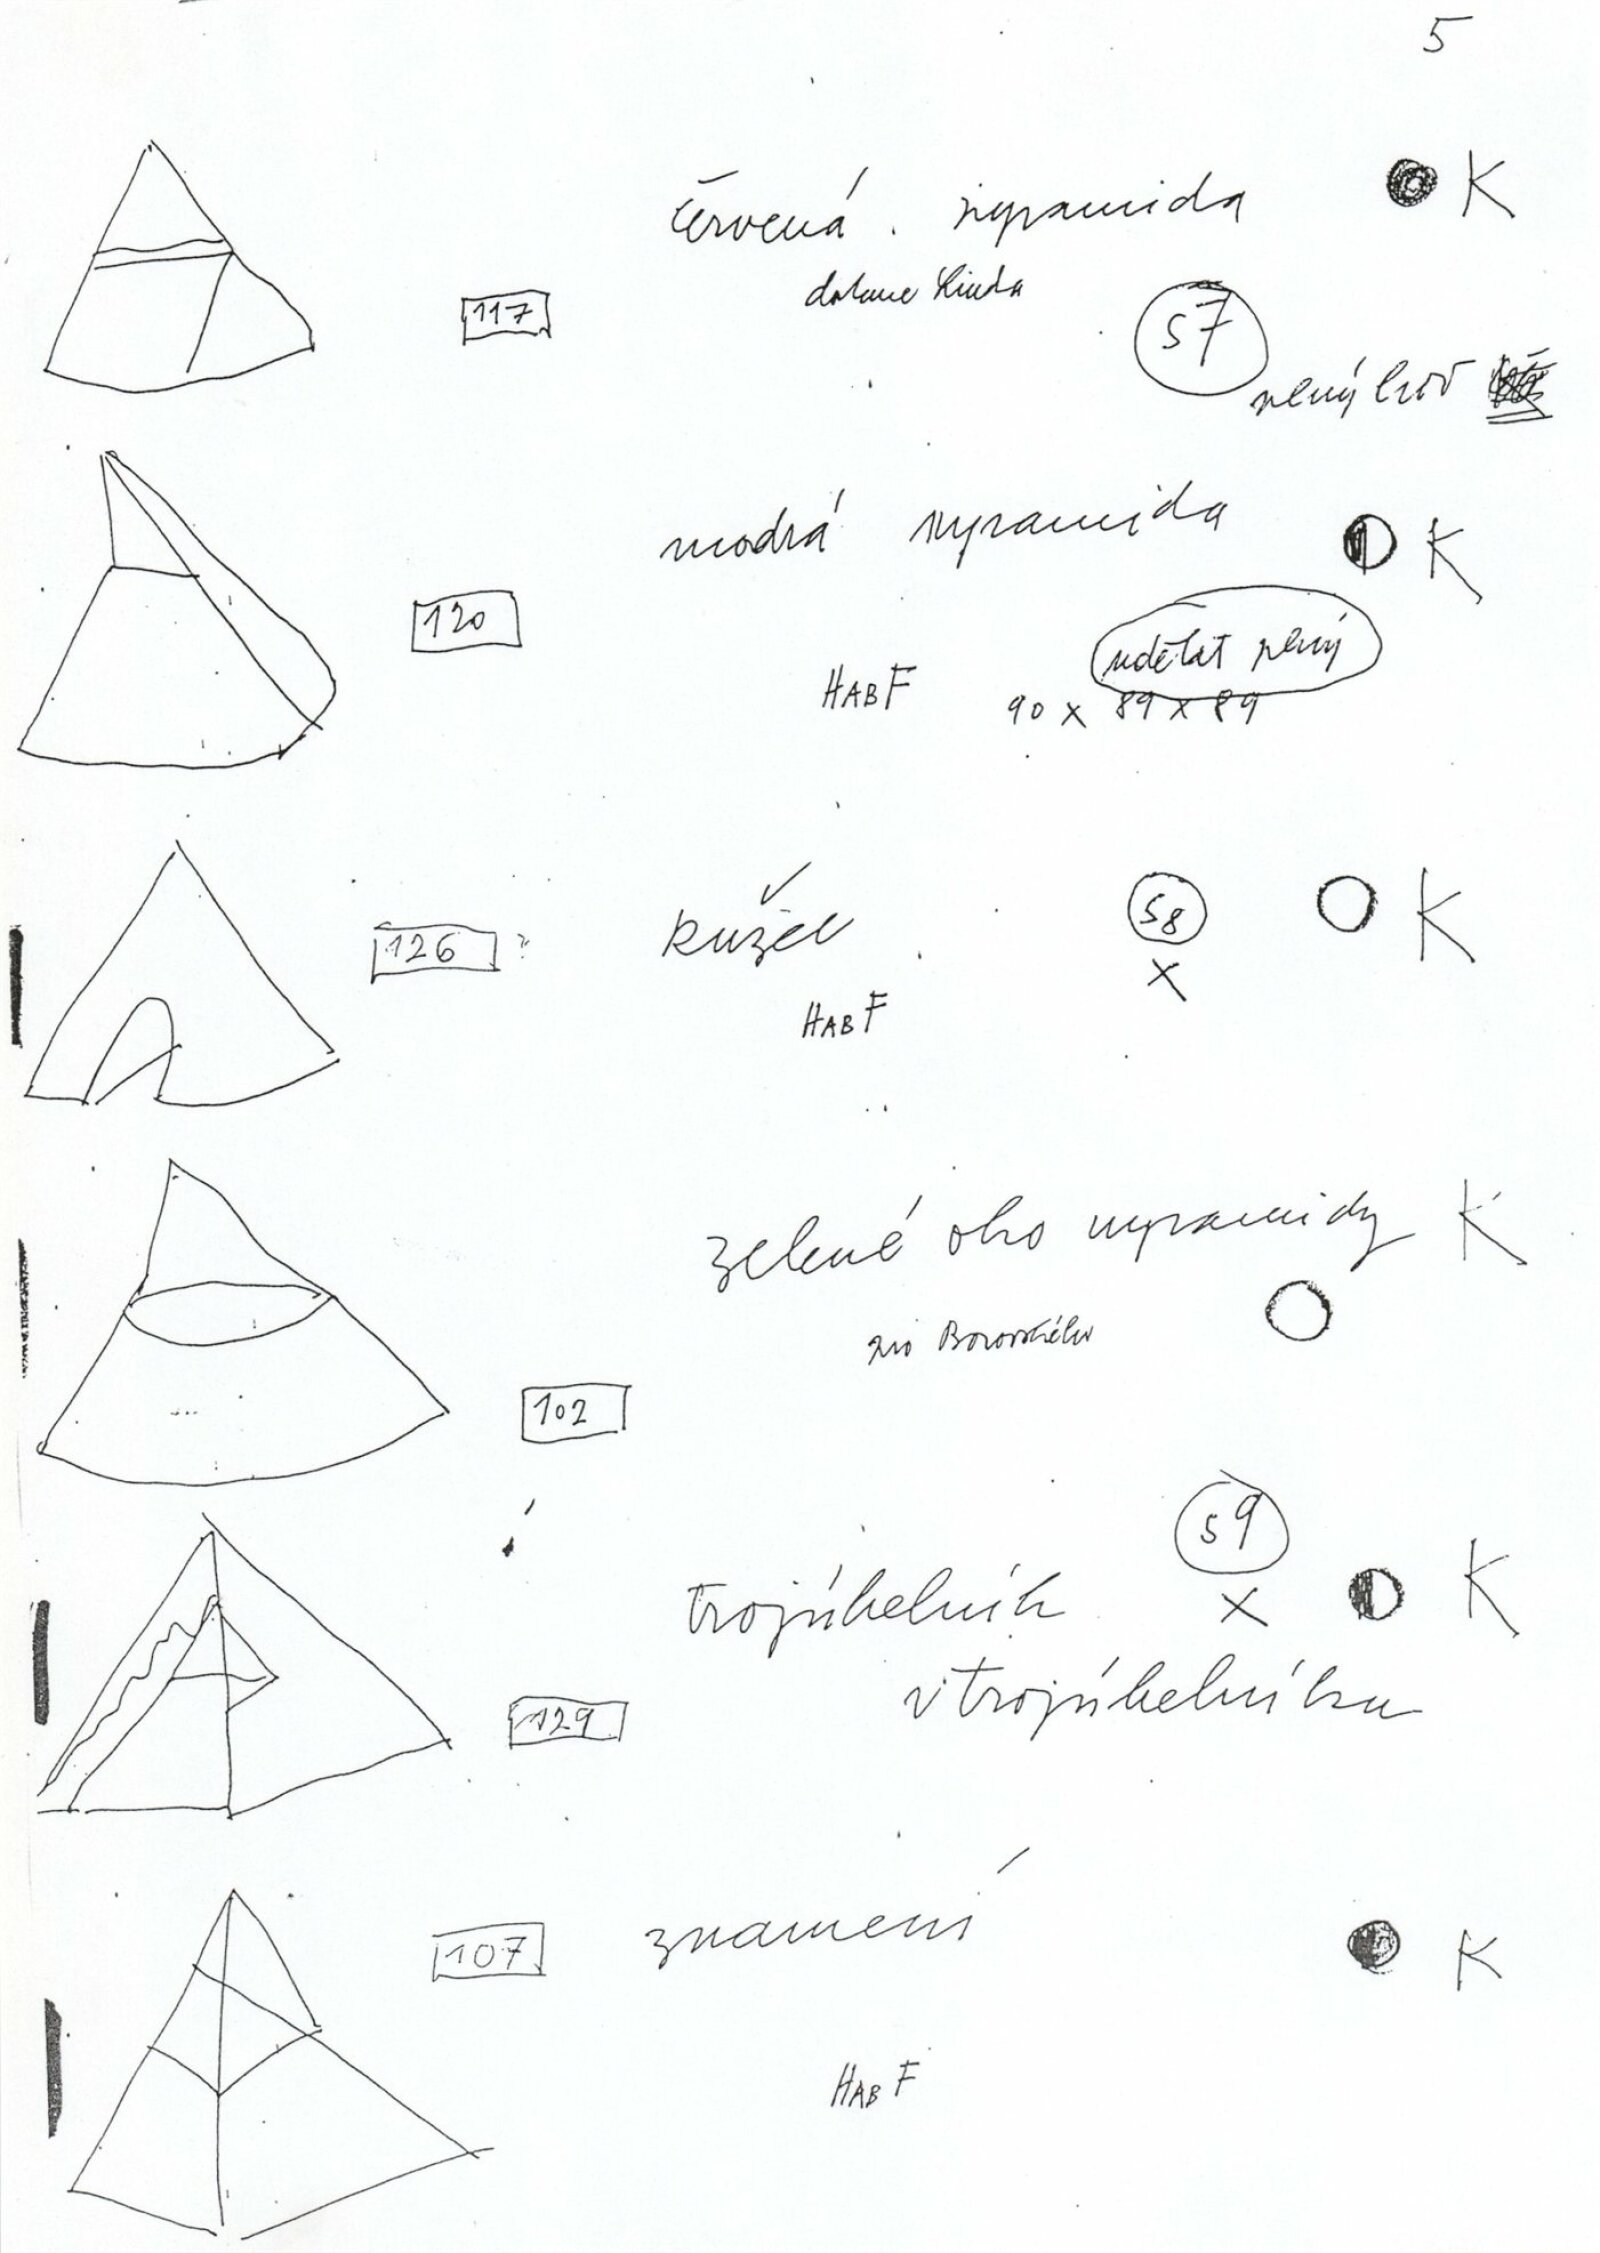 5
červená pyramida K
117
57
plný
modrá pyramida K
120
udělat plný
HABF 90 x 89 x 89
kužel 58 K
126 ?
x
HABF
zelené oko pyramidy K
102
59
trojúhelník x K
v trojúhelníku
129
107 znamení K
HABF